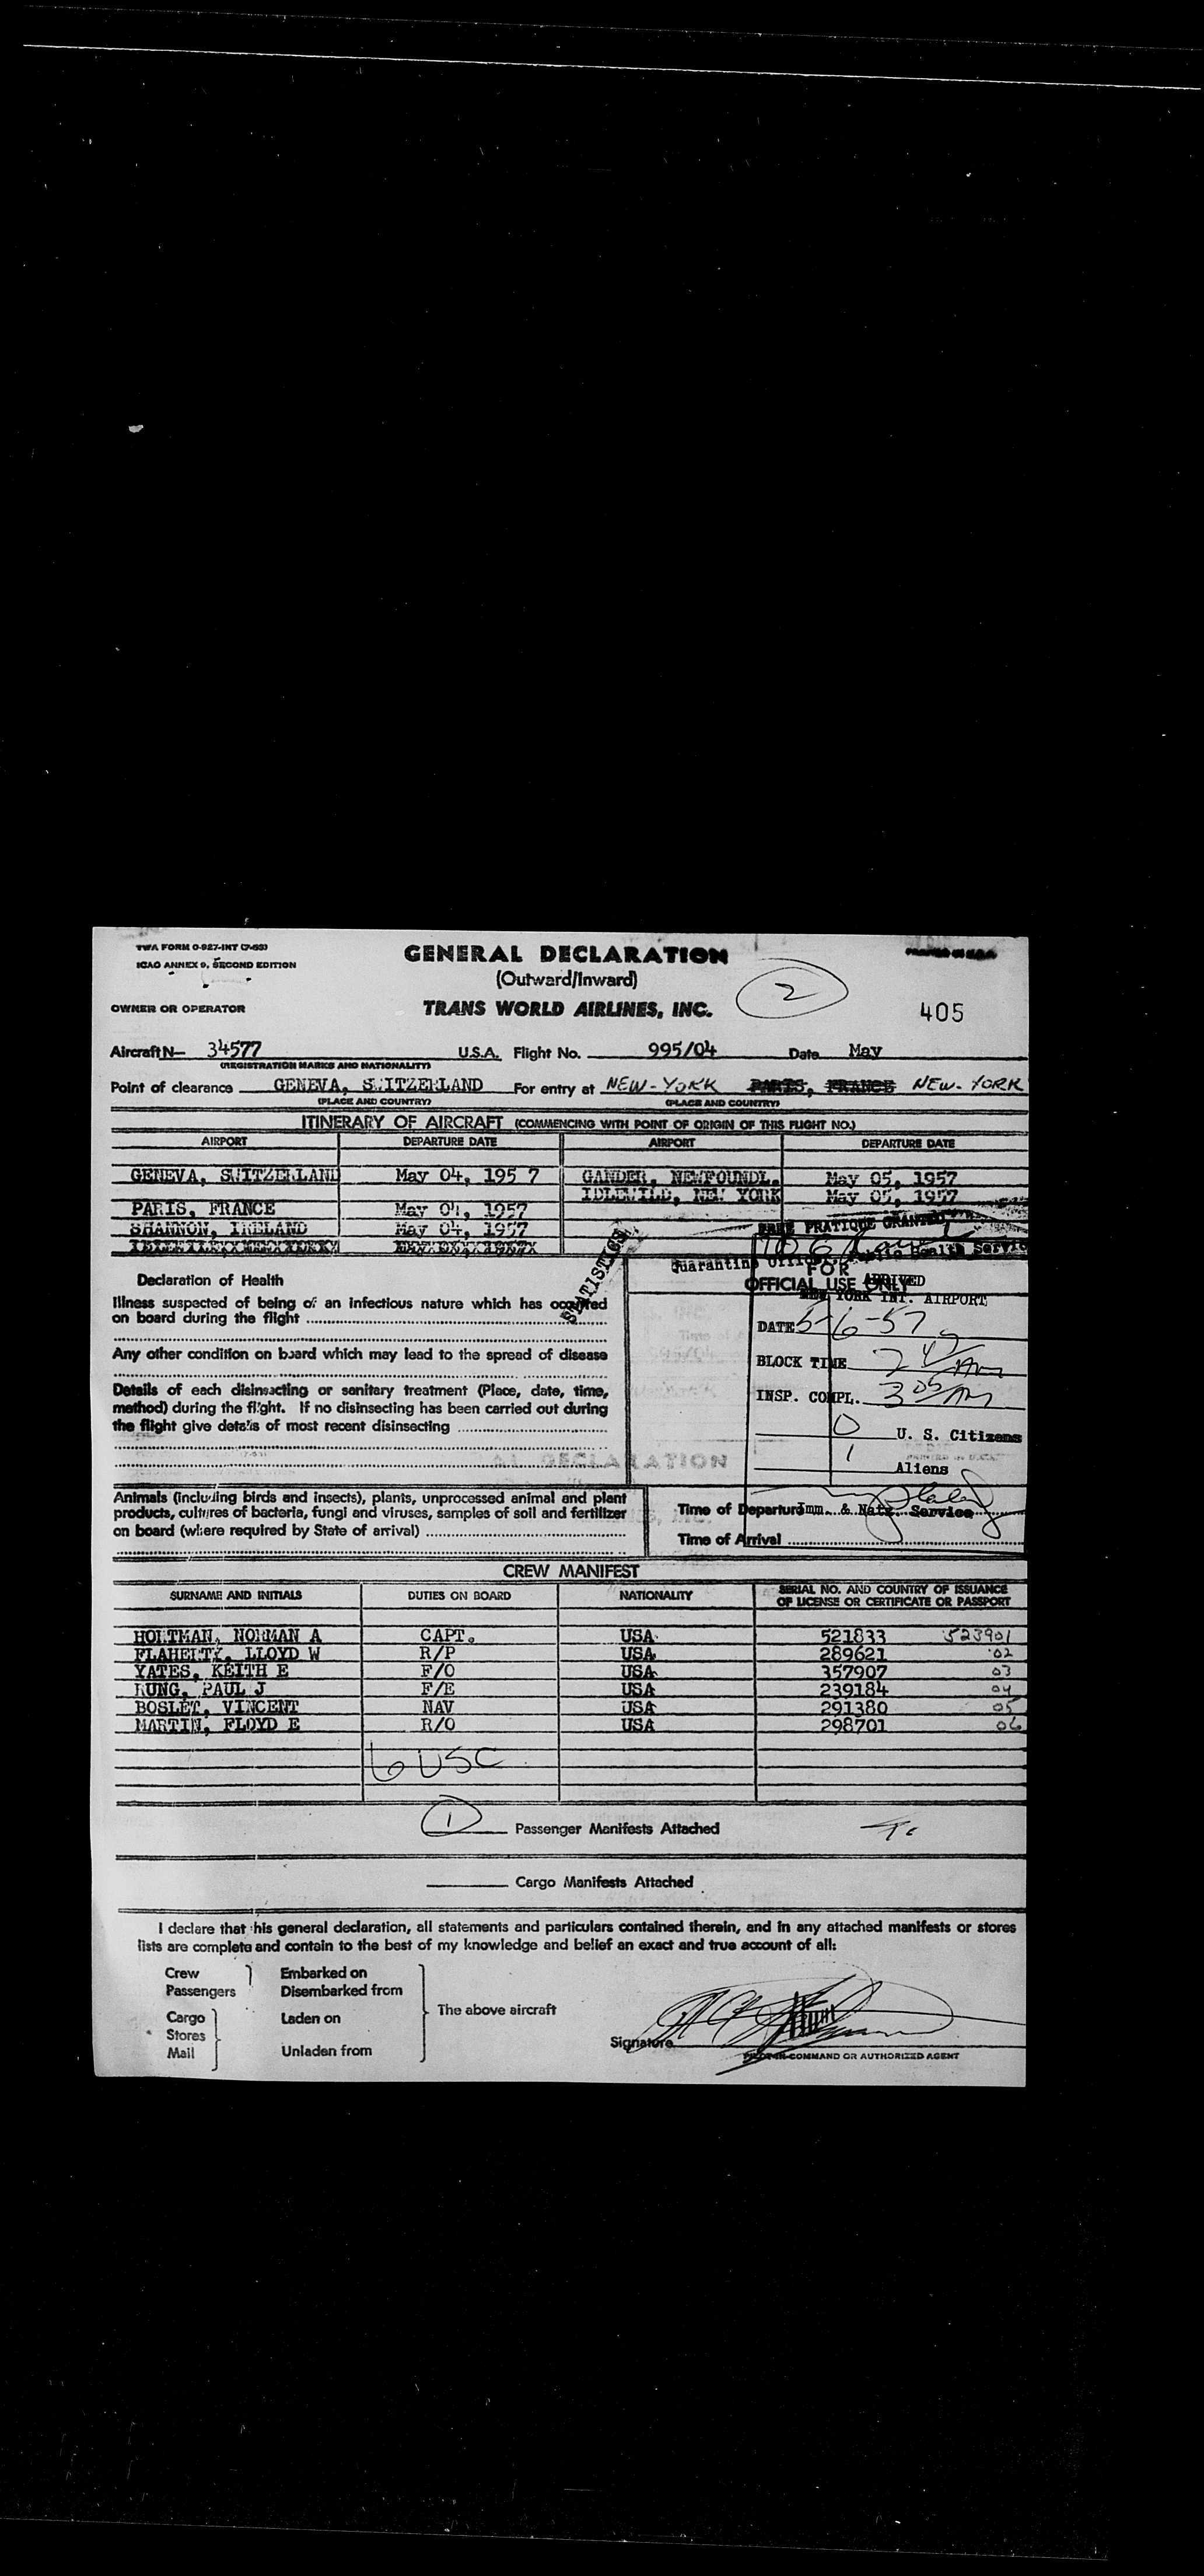 TWA FORM O-927-INT (7-53)
ICAO ANNEX 9, SECOND EDITION
GENERAL DECLARATION
(Outward/Inward)
2
OWNER OR OPERATOR
TRANS WORLD AIRLINES, INC.
405
Aircraft N— 34577 U.S.A. Flight No. 995/04 Date May
(REGISTRATION MARKS AND NATIONALITY)
Point of clearance GENEVA, SWITZERLAND For entry at NEW-YORK PARIS, FRANCE NEW-YORK
(PLACE AND COUNTRY) (PLACE AND COUNTRY)
ITINERARY OF AIRCRAFT (COMMENCING WITH POINT OF ORIGIN OF THIS FLIGHT NO.)
AIRPORT DEPARTURE DATE AIRPORT DEPARTURE DATE
GENEVA, SWITZERLAND May 04, 195 7 GANDER, NEWFOUNDL. May 05, 1957
IDLEWILD, NEW YORK May 05, 1957
PARIS, FRANCE May 04, 1957
SHANNON, IRELAND May 04, 1957
FREE PRATIQUE GRANTED
Quarantine Officer, Public Health Service
STATISTICS
FOR
OFFICIAL USE ONLY
ARRIVED
NEW YORK INT. AIRPORT
DATE 5-6-57
BLOCK TIME 2 45 AM
INSP. COMPL. 3 05 AM
0 U. S. Citizens
1 Aliens
Imm. & Natz. Service
Declaration of Health
Illness suspected of being of an infectious nature which has occurred
on board during the flight
Any other condition on board which may lead to the spread of disease
Details of each disinsecting or sanitary treatment (Place, date, time,
method) during the flight. If no disinsecting has been carried out during
the flight give details of most recent disinsecting
Animals (including birds and insects), plants, unprocessed animal and plant
products, cultures of bacteria, fungi and viruses, samples of soil and fertilizer
on board (where required by State of arrival)
Time of Departure
Time of Arrival
CREW MANIFEST
SURNAME AND INITIALS DUTIES ON BOARD NATIONALITY SERIAL NO. AND COUNTRY OF ISSUANCE
OF LICENSE OR CERTIFICATE OR PASSPORT
HOLTMAN, NORMAN A CAPT. USA 521833 523901
FLAHERTY, LLOYD W R/P USA 289621 02
YATES, KEITH E F/O USA 357907 03
KUNG, PAUL J F/E USA 239184 04
BOSLET, VINCENT NAV USA 291380 05
MARTIN, FLOYD E R/O USA 298701 06
6 USC
1 Passenger Manifests Attached
Cargo Manifests Attached
I declare that this general declaration, all statements and particulars contained therein, and in any attached manifests or stores
lists are complete and contain to the best of my knowledge and belief an exact and true account of all:
Crew Embarked on
Passengers Disembarked from
The above aircraft
Cargo Laden on
Stores
Mail Unladen from
Signature
PILOT-IN-COMMAND OR AUTHORIZED AGENT